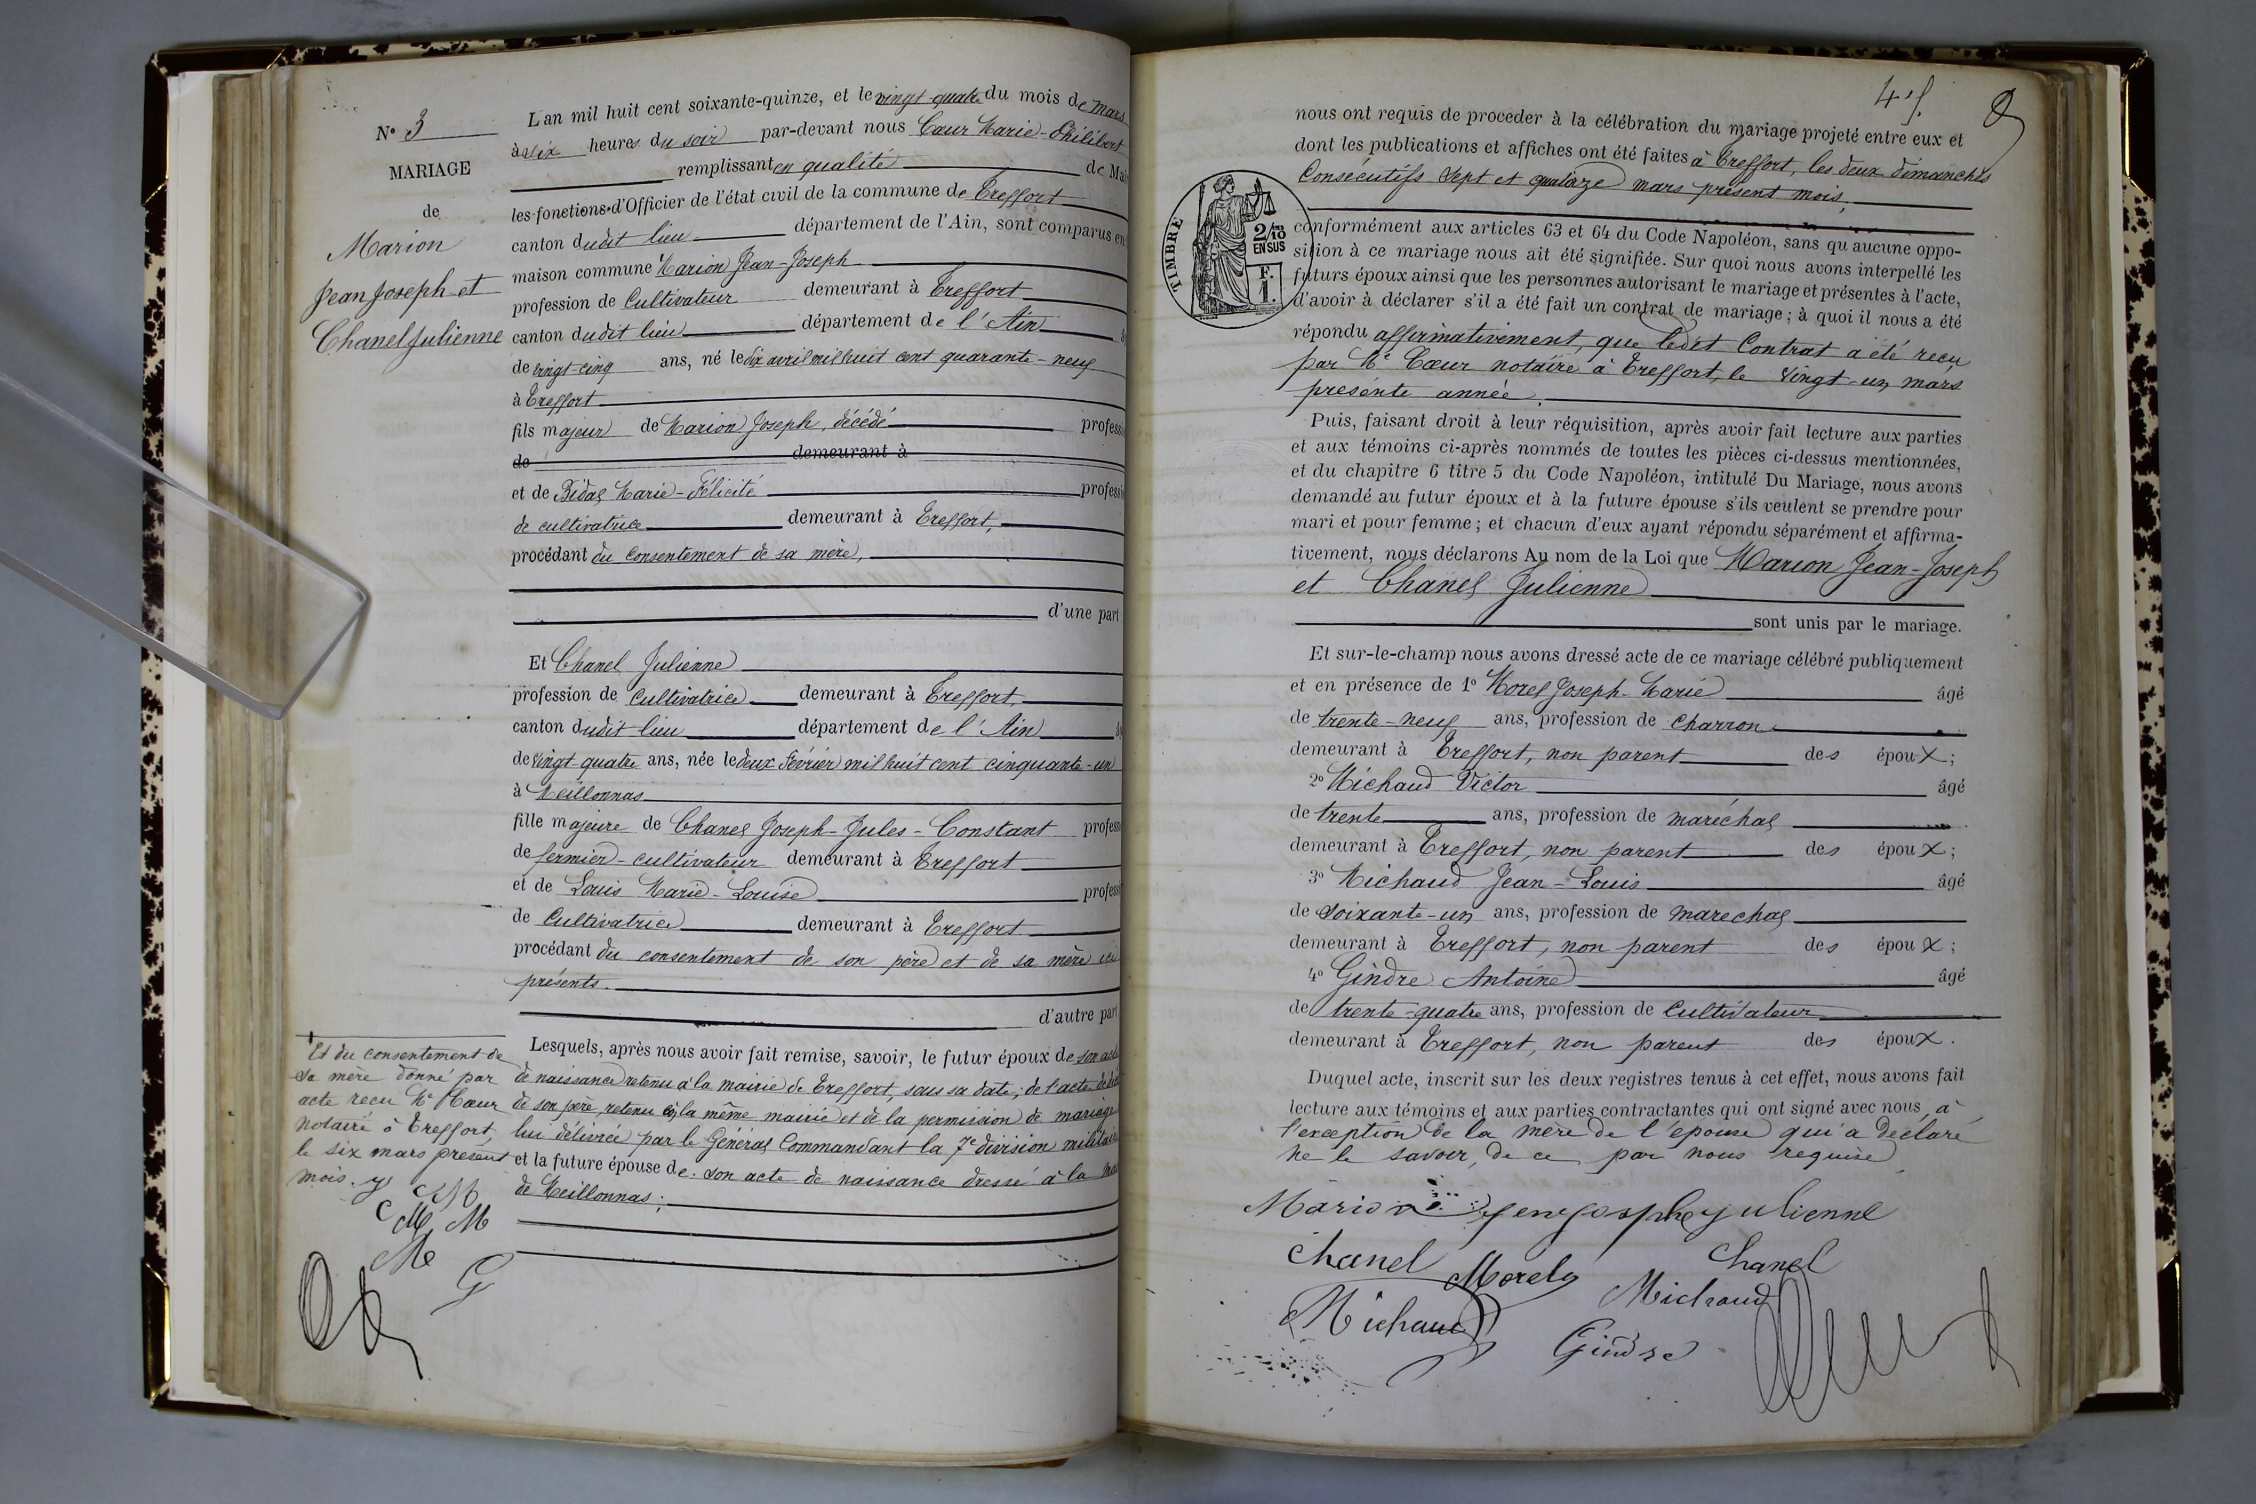 N° 3
MARIAGE
de
Marion
Jean Joseph et
Chanel Julienne
L'an mil huit cent soixante-quinze, et le vingt quatre du mois de mars
à six heures du soir par-devant nous Cœur Marie-Philibert
remplissant en qualité de Mai
les fonctions d'Officier de l'état civil de la commune de Treffort
canton dudit lieu département de l'Ain, sont comparus en
maison commune Marion Jean-Joseph
profession de Cultivateur demeurant à Treffort
canton dudit lieu département de l'Ain
de vingt-cinq ans, né le dix avril mil huit cent quarante-neuf
à Treffort
fils majeur de Marion Joseph, décédé profess
de demeurant à
et de Bidal Marie-Félicité professi
de cultivatrice demeurant à Treffort,
procédant du consentement de sa mère,
d'une part
Et Chanel Julienne
profession de Cultivatrice demeurant à Treffort,
canton dudit lieu département de l'Ain
de vingt quatre ans, née le deux Février mil huit cent cinquante-un
à Meillonnas
fille majeure de Chanel Joseph-Jules-Constant profess
de fermier-cultivateur demeurant à Treffort
et de Louis Marie-Louise profess
de Cultivatrice demeurant à Treffort
procédant du consentement de son père et de sa mère ici
présents.
d'autre part
Lesquels, après nous avoir fait remise, savoir, le futur époux de son acte
de naissance retenu à la mairie de Treffort, sous sa date; de l'acte de
de son père, retenu en la même mairie et de la permission de mariage
lui délivrée par le Général Commandant la 7e division militaire
et la future épouse de: son acte de naissance dressé à la
de Meillonnas;
Et du consentement de
sa mère donné par
acte reçu Me Cœur
notaire à Treffort,
le six mars présent
mois. y CM
C M M
M
G
45.
nous ont requis de procéder à la célébration du mariage projeté entre eux et
dont les publications et affiches ont été faites à Treffort, les deux dimanches
Consécutifs Sept et quatorze mars présent mois,
TIMBRE
2/10
EN SUS
F.
1.
conformément aux articles 63 et 64 du Code Napoléon, sans qu'aucune oppo-
sition à ce mariage nous ait été signifiée. Sur quoi nous avons interpellé les
futurs époux ainsi que les personnes autorisant le mariage et présentes à l'acte,
d'avoir à déclarer s'il a été fait un contrat de mariage; à quoi il nous a été
répondu affirmativement, que ledit Contrat a été reçu
par Me Cœur notaire à Treffort, le vingt-un mars
présente année.
Puis, faisant droit à leur réquisition, après avoir fait lecture aux parties
et aux témoins ci-après nommés de toutes les pièces ci-dessus mentionnées,
et du chapitre 6 titre 5 du Code Napoléon, intitulé Du Mariage, nous avons
demandé au futur époux et à la future épouse s'ils veulent se prendre pour
mari et pour femme; et chacun d'eux ayant répondu séparément et affirma-
tivement, nous déclarons Au nom de la Loi que Marion Jean-Joseph
et Chanel Julienne
sont unis par le mariage.
Et sur-le-champ nous avons dressé acte de ce mariage célébré publiquement
et en présence de 1° Morel Joseph-Marie âgé
de trente-neuf ans, profession de charron
demeurant à Treffort, non parent des époux;
2° Michaud Victor âgé
de trente ans, profession de maréchal
demeurant à Treffort, non parent des époux;
3° Michaud Jean-Louis âgé
de soixante-un ans, profession de marechal
demeurant à Treffort, non parent des époux;
4° Gindre Antoine âgé
de trente-quatre ans, profession de Cultivateur
demeurant à Treffort, non parent des époux.
Duquel acte, inscrit sur les deux registres tenus à cet effet, nous avons fait
lecture aux témoins et aux parties contractantes qui ont signé avec nous, à
l'exception de la mère de l'épouse qui a déclaré
ne le savoir, de ce par nous requise
Marion julienne
Chanel Morel Chanel
Michaud Michaud
Gindre